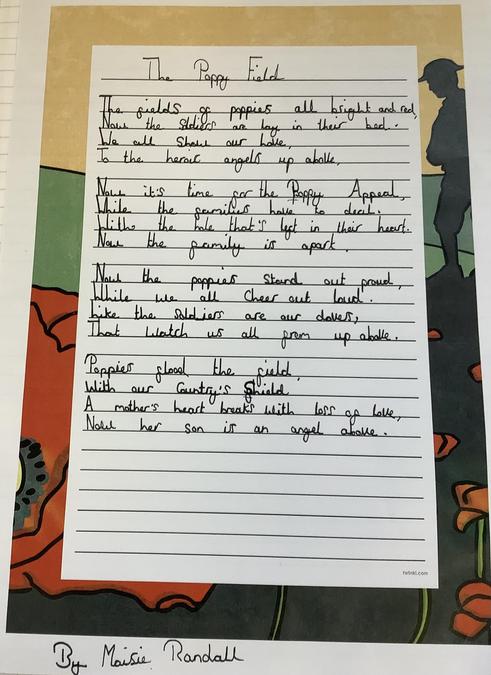 The Poppy Field
The fields of poppies all bright and red,
Now the soldiers are lay in their bed.
We all show our love,
To the heroic angels up above,
Now it's time for the Poppy Appeal,
While the families have to deal.
With the hole that's left in their heart.
Now the family is apart.
Now the poppies stand out proud,
While we all cheer out loud.
Like the soldiers are our doves,
That watch us all from up above.
Poppies flood the field,
With our Country's Shield
A mother's heart breaks with loss of love,
Now her son is an angel above.
twinkl.com
By Maisie Randall